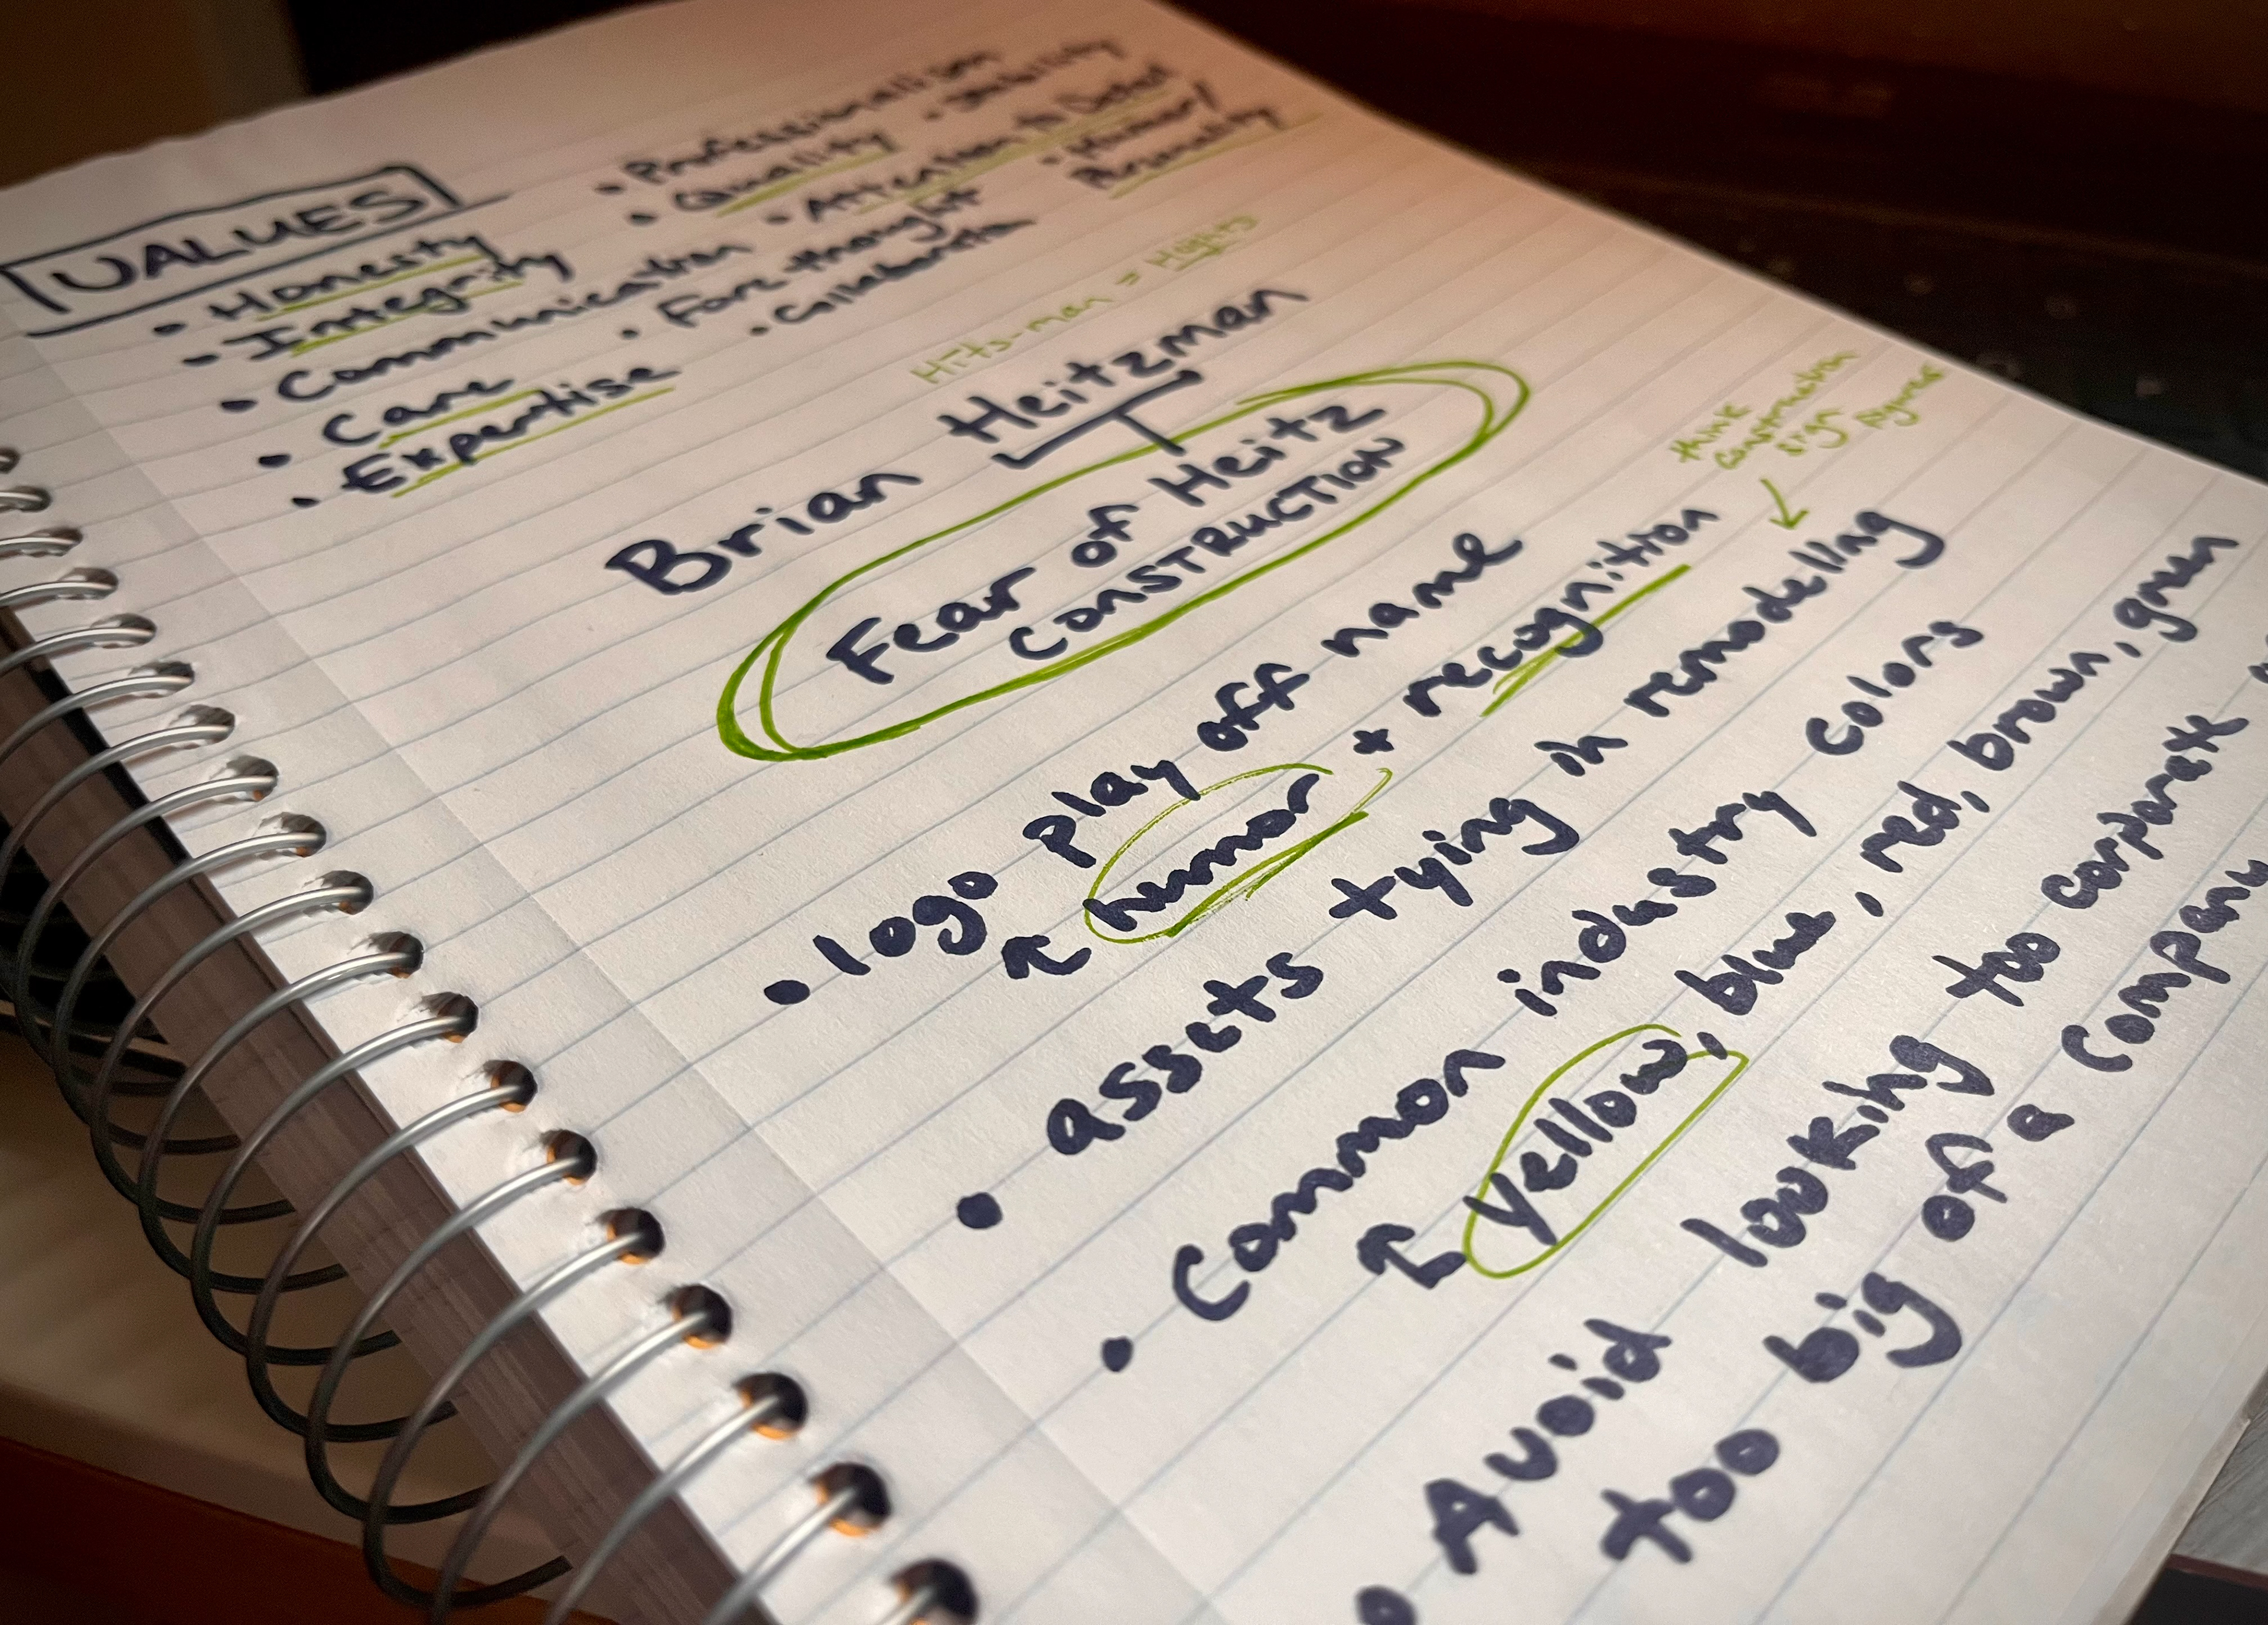 VALUES
• Honesty
• Integrity
• Communication
• Care
• Expertise
• Professionalism
• Quality
• Attention to Detail
• Fore-thought
• Collaboration
• Humor/
Personality
Hits-man = Hights
Brian Heitzman
Fear of Heitz
CONSTRUCTION
• logo play off name
↖ humor + recognition
think
construction
sign figures
• assets tying in remodeling
• Common industry colors
↖ yellow, blue, red, brown, green
• Avoid looking too corporate
too big of a company